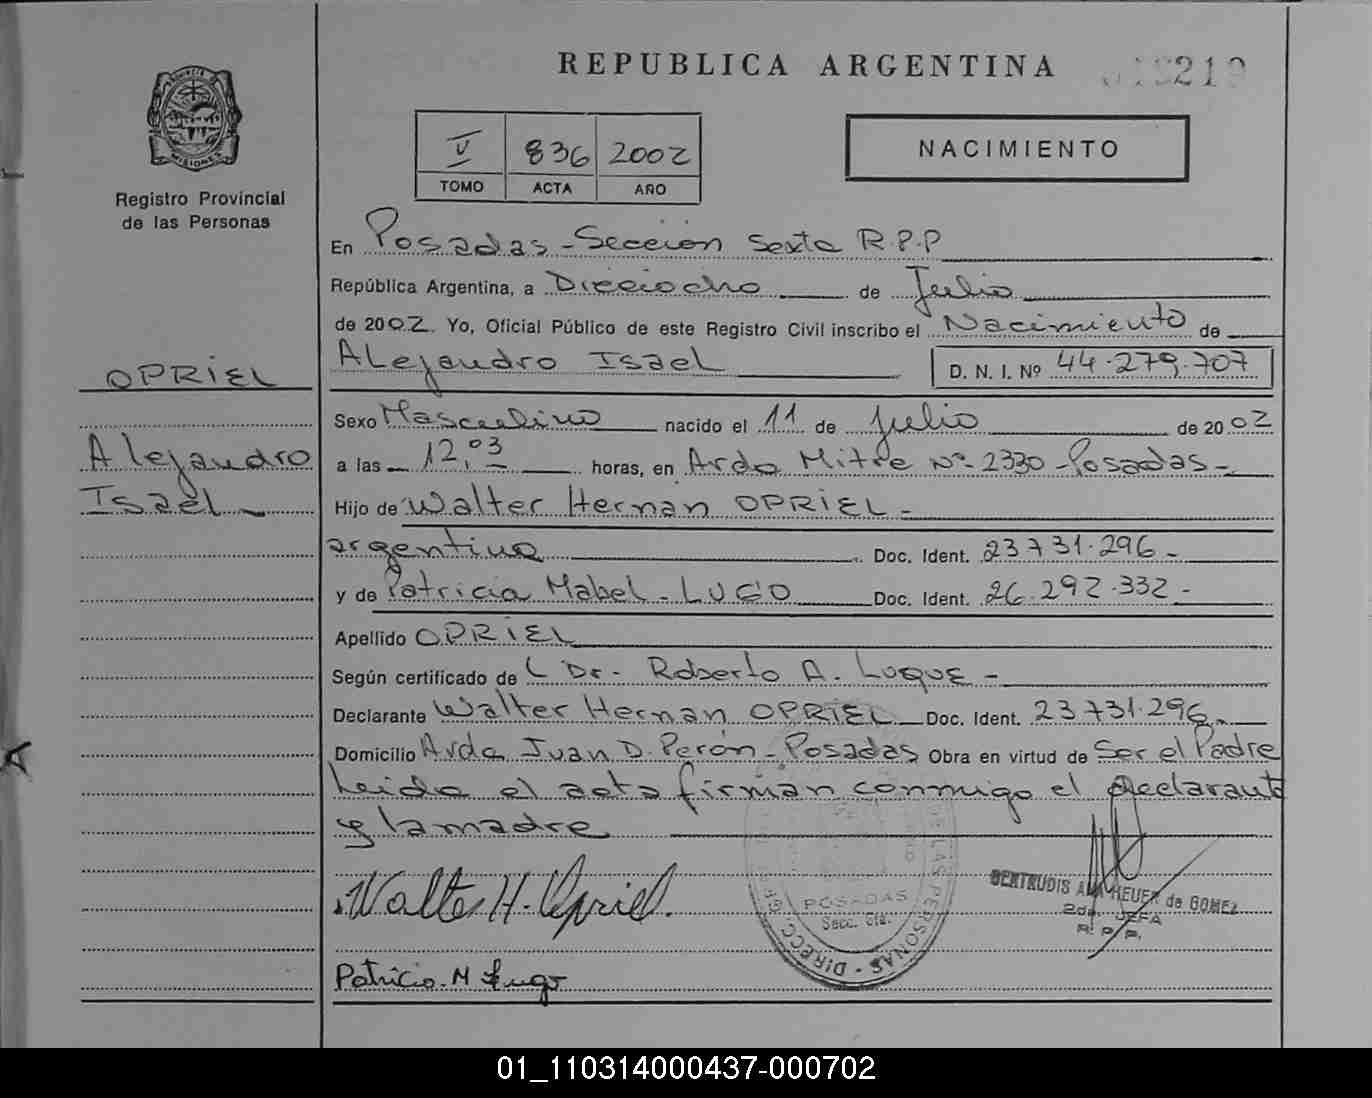 REPUBLICA ARGENTINA
219
PROVINCIA DE MISIONES
Registro Provincial
de las Personas
V 836 2002
TOMO ACTA AÑO
NACIMIENTO
En Posadas - Sección Sexta R.P.P
República Argentina, a Dieciocho de Julio
de 2002. Yo, Oficial Público de este Registro Civil inscribo el Nacimiento de
Alejandro Isael
D. N. I. Nº 44.279.707
OPRIEL
Alejandro
Isael
Sexo Masculino nacido el 11 de Julio de 2002
a las 12,03 horas, en Avda Mitre Nº 2330 - Posadas -
Hijo de Walter Hernan OPRIEL -
argentino Doc. Ident. 23731.296 -
y de Patricia Mabel - LUGO Doc. Ident. 26.292.332 -
Apellido OPRIEL
Según certificado de Dr. Roberto A. Luque -
Declarante Walter Hernan OPRIEL Doc. Ident. 23731.296
Domicilio Avda Juan D. Perón - Posadas Obra en virtud de Ser el Padre
Leida el acta firman conmigo el declarante
y la madre
Walter H. Opriel.
Patricia M Lugo
DIRECC. DE LAS PERSONAS
POSADAS
Secc. 6ta.
GERTRUDIS HEUER de GOMEZ
2da. JEFA
R. P. P.
01_110314000437-000702